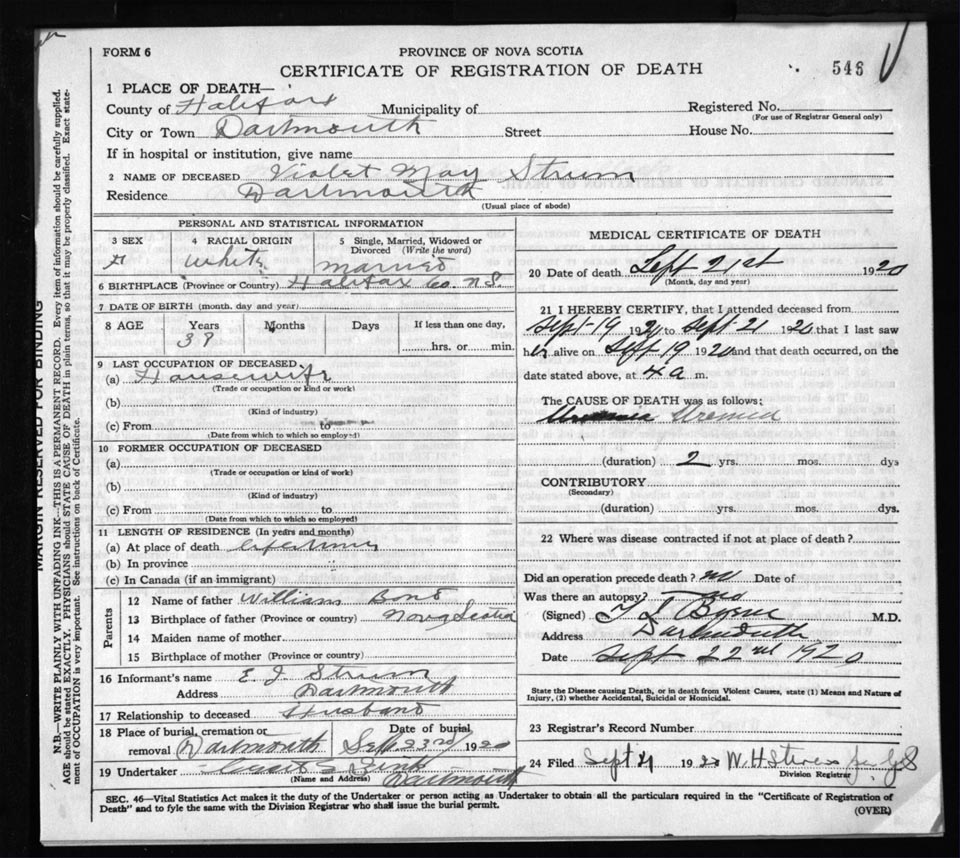 FORM 6
PROVINCE OF NOVA SCOTIA
CERTIFICATE OF REGISTRATION OF DEATH
546
1 PLACE OF DEATH—
County of Halifax Municipality of Registered No.
(For use of Registrar General only)
City or Town Dartmouth Street House No.
If in hospital or institution, give name
2 NAME OF DECEASED Violet May Strum
Residence Dartmouth
(Usual place of abode)
MARGIN RESERVED FOR BINDING
N.B.—WRITE PLAINLY WITH UNFADING INK—THIS IS A PERMANENT RECORD. Every item of information should be carefully supplied.
AGE should be stated EXACTLY. PHYSICIANS should STATE CAUSE OF DEATH in plain terms, so that it may be properly classified. Exact state-
ment of OCCUPATION is very important. See instructions on back of Certificate.
PERSONAL AND STATISTICAL INFORMATION
3 SEX 4 RACIAL ORIGIN 5 Single, Married, Widowed or
Divorced (Write the word)
White Married
6 BIRTHPLACE (Province or Country) Halifax Co. N.S.
7 DATE OF BIRTH (month, day and year)
8 AGE Years Months Days If less than one day,
38
hrs. or min.
9 LAST OCCUPATION OF DECEASED
(a) Housewife
(Trade or occupation or kind or work)
(b)
(Kind of industry)
(c) From to
(Date from which to which so employed)
10 FORMER OCCUPATION OF DECEASED
(a)
(Trade or occupation or kind of work)
(b)
(Kind of industry)
(c) From to
(Date from which to which so employed)
11 LENGTH OF RESIDENCE (In years and months)
(a) At place of death lifetime
(b) In province
(c) In Canada (if an immigrant)
Parents
12 Name of father William Bond
13 Birthplace of father (Province or country) Nova Scotia
14 Maiden name of mother
15 Birthplace of mother (Province or country)
16 Informant's name E. J. Strum
Address Dartmouth
17 Relationship to deceased Husband
18 Place of burial, cremation or Date of burial
removal Dartmouth Sept 23rd 1920
19 Undertaker
(Name and Address) Dartmouth
MEDICAL CERTIFICATE OF DEATH
20 Date of death Sept 21st 1920
(Month, day and year)
21 I HEREBY CERTIFY, that I attended deceased from
Sept-19 192 to Sept-21 1920 that I last saw
her alive on Sept 19 1920 and that death occurred, on the
date stated above, at 4 a m.
The CAUSE OF DEATH was as follows:
Uremia
(duration) 2 yrs. mos. dys
CONTRIBUTORY
(Secondary)
(duration) yrs. mos. dys.
22 Where was disease contracted if not at place of death?
Did an operation precede death? no Date of
Was there an autopsy? no
(Signed) Byrne M.D.
Address Dartmouth
Date Sept 22nd 1920
State the Disease causing Death, or in death from Violent Causes, state (1) Means and Nature of
Injury, (2) whether Accidental, Suicidal or Homicidal.
23 Registrar's Record Number
24 Filed Sept 192 W. H. Stevens
Division Registrar
SEC. 46—Vital Statistics Act makes it the duty of the Undertaker or person acting as Undertaker to obtain all the particulars required in the "Certificate of Registration of
Death" and to fyle the same with the Division Registrar who shall issue the burial permit.
(OVER)